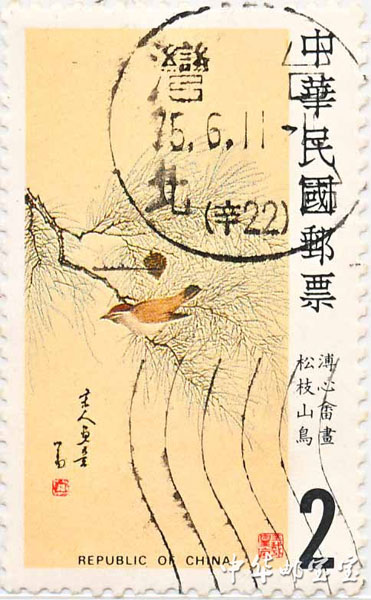 中華民國郵票
灣
75.6.11
北
(辛22)
溥心畬畫
松枝山鳥
2
REPUBLIC OF CHINA
中华邮宝宝